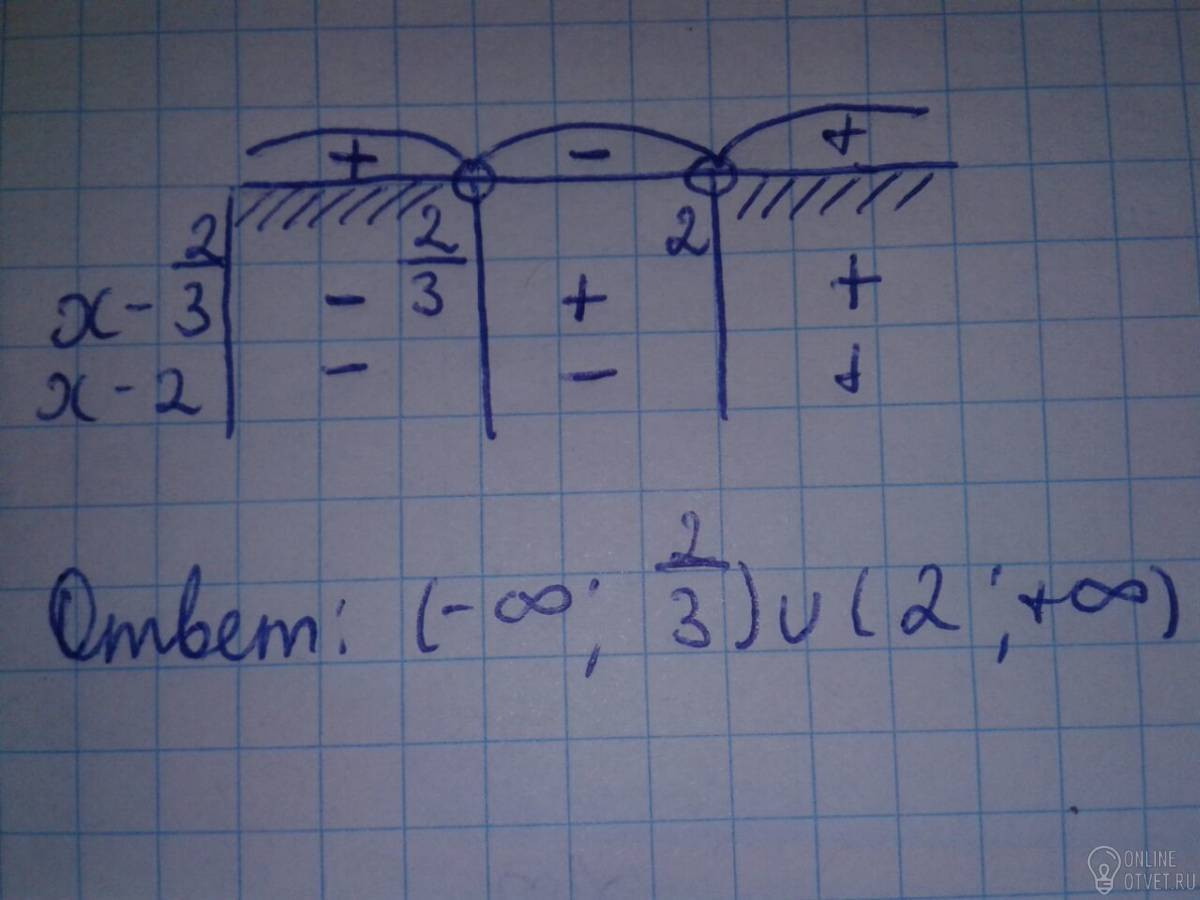 + - +
2/3 2
x - 2/3 - + +
x - 2 - - +
Ответ: (-∞; 2/3) ∪ (2; +∞)
ONLINE
OTVET.RU